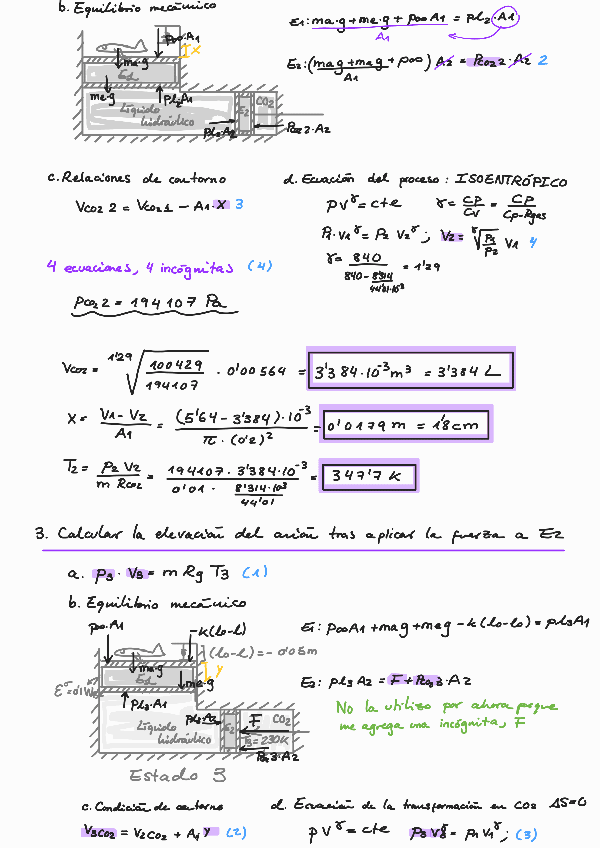 b. Equilibrio mecánico
E1: ma·g + me·g + p∞ A1 = pl2·A1
A1
E2: (ma·g + me·g + p∞) A2 = Pco2 2·A2 2
A1
p∞·A1
X
ma·g
E1
me·g
pl2·A1
Líquido hidráulico
E2
CO2
pl2·A2
Pco2 2·A2
c. Relaciones de contorno
Vco2 2 = Vco2 1 - A1·X 3
d. Ecuación del proceso: ISOENTRÓPICO
p V^γ = cte γ = Cp/Cv = Cp/(Cp-Rgas)
P1·V1^γ = P2 V2^γ; V2 = γ√(P1/P2) V1 4
γ = 840/(840 - 8314/(44'01·10³)) = 1'29
4 ecuaciones, 4 incógnitas (4)
Pco2 2 = 194107 Pa
Vco2 = 1'29√(100429/194107) · 0'00564 = 3'384·10^-3 m³ = 3'384 L
X = (V1-V2)/A1 = (5'64 - 3'384)·10^-3/(π·(0'2)²) = 0'0179 m = 1'8 cm
T2 = P2 V2/(m Rco2) = 194107·3'384·10^-3/(0'01 · 8'314·10³/44'01) = 347'7 K
3. Calcular la elevación del avión tras aplicar la fuerza a E2
a. P3 · V3 = m Rg T3 (1)
b. Equilibrio mecánico
p∞·A1
-K(lo-l)
(lo-l) = -0'05m
y
ma·g
E1
me·g
pl3·A1
pl3·A2
Líquido hidráulico
E2
F
CO2
T3 = 230K
P3·A2
Estado 3
E1: p∞A1 + ma g + me g - k(lo-lo) = pl3 A1
E2: pl3 A2 = F + Pco2 3·A2
No la utilizo por ahora porque
me agrega una incógnita, F
c. Condición de contorno
V3co2 = V2co2 + A1 y (2)
d. Ecuación de la transformación en CO2 ΔS=0
p V^γ = cte P3 V3^γ = P1 V1^γ; (3)